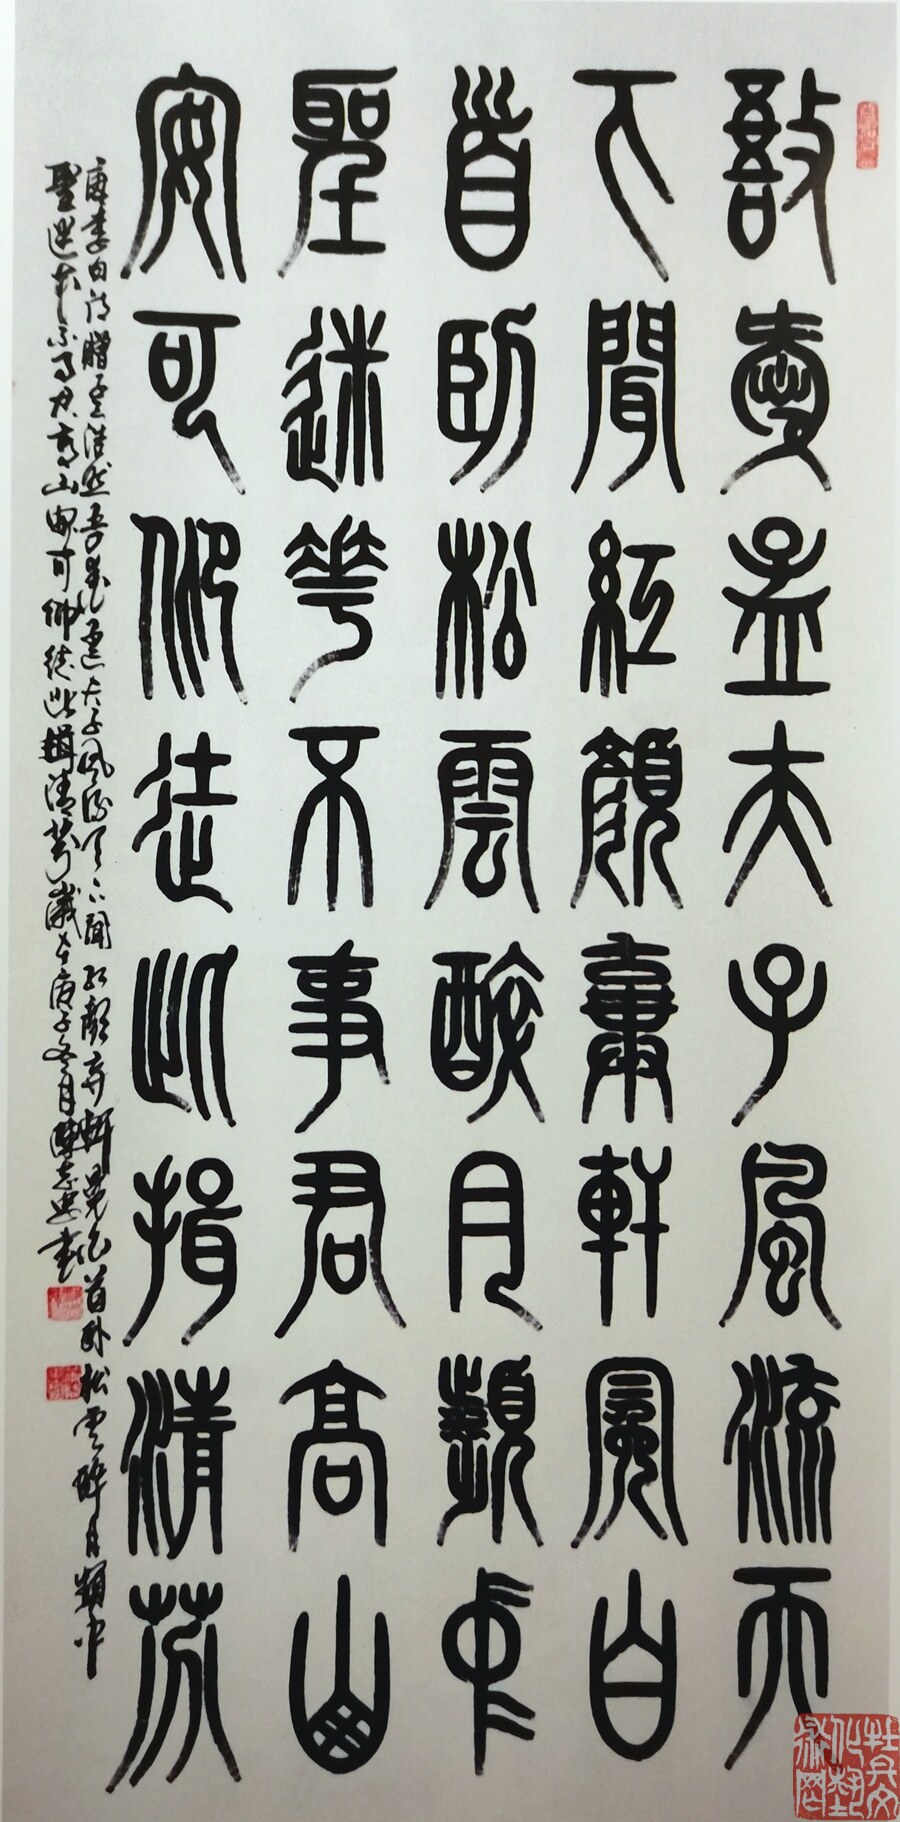 敔愛孟夫子風流天
下聞紅顏棄軒冕白
首臥松雲醉月頻中
聖迷花不事君高山
安可仰徒此揖清芬
唐李白詩贈孟浩然吾愛孟夫子風流天下聞紅顏棄軒冕白首臥松雲醉月頻中
聖迷花不事君高山安可仰徒此揖清芬歲在庚子冬月陳志忠書